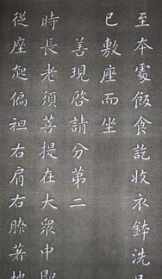 至本處飯食訖收衣鉢洗
已敷座而坐
善現啓請分第二
時長老須菩提在大眾中即
從座起偏袒右肩右膝著地